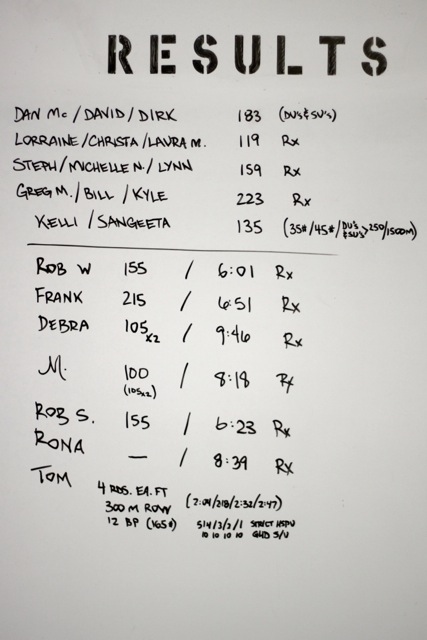 RESULTS
DAN Mc / DAVID / DIRK 183 (DU's & SU's)
LORRAINE / CHRISTA / LAURA M. 119 Rx
STEPH / MICHELLE N. / LYNN 159 Rx
GREG M. / BILL / KYLE 223 Rx
KELLI / SANGEETA 135 (35# / 45# / DU's & SU's > 250/1500M)
ROB W 155 / 6:01 Rx
FRANK 215 / 6:51 Rx
DEBRA 105 x2 / 9:46 Rx
M. 100 / 8:18 Rx
(105x2)
ROB S. 155 / 6:23 Rx
RONA — / 8:39 Rx
TOM
4 RDS. EA. FT (2:04/2:18/2:32/2:47)
300 M ROW
12 BP (165#) 5/4/3/2/1 STRICT HSPU
10 10 10 10 GHD S/U